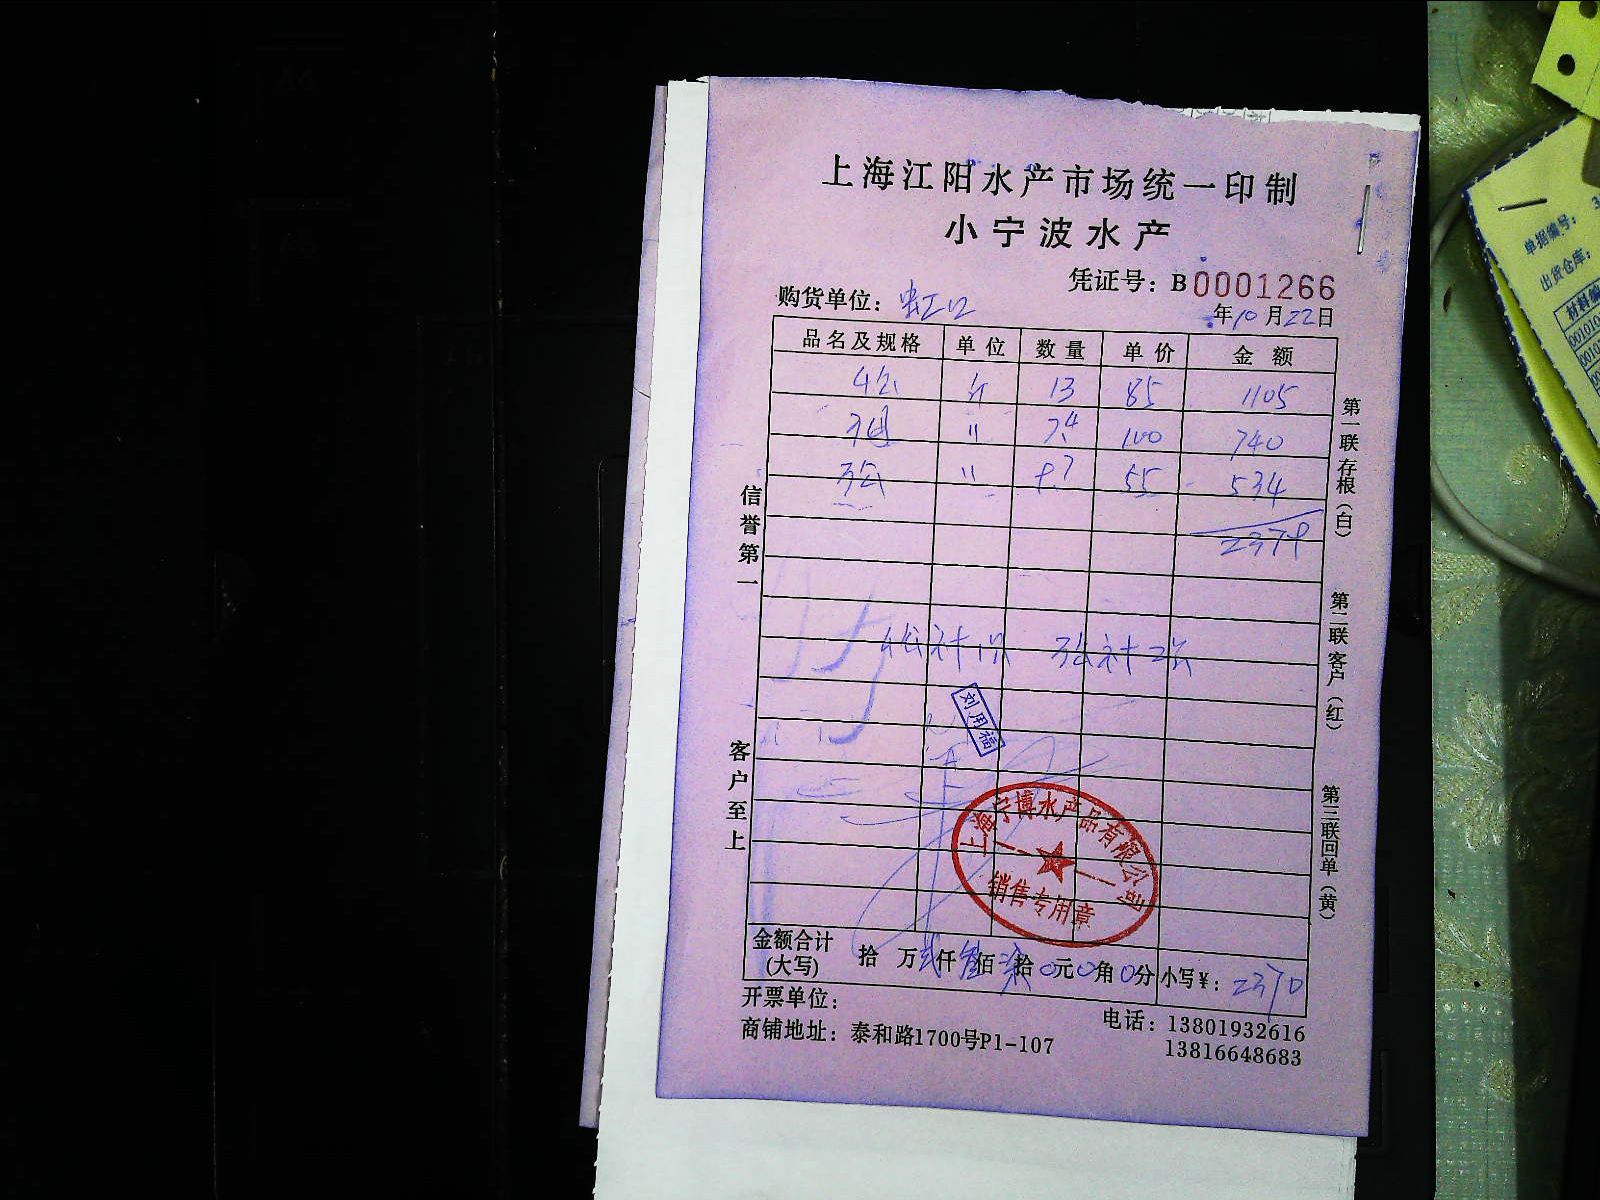 上海江阳水产市场统一印制
小宁波水产
凭证号：B0001266
购货单位：虹口
年10月22日
品名及规格 单位 数量 单价 金额
4公 斤 13 85 1105
〃 7.4 100 740
〃 9.7 55 534
2379
信誉第一
客户至上
第一联存根（白）
第二联客户（红）
第三联回单（黄）
刘用福
上海宁博水产品有限公司
销售专用章
金额合计(大写) 拾 万 贰仟 叁佰 柒拾 0元 0角 0分 小写¥：2370
开票单位：
商铺地址：泰和路1700号P1-107
电话：13801932616
13816648683
单据编号：3
出货仓库：
材料编